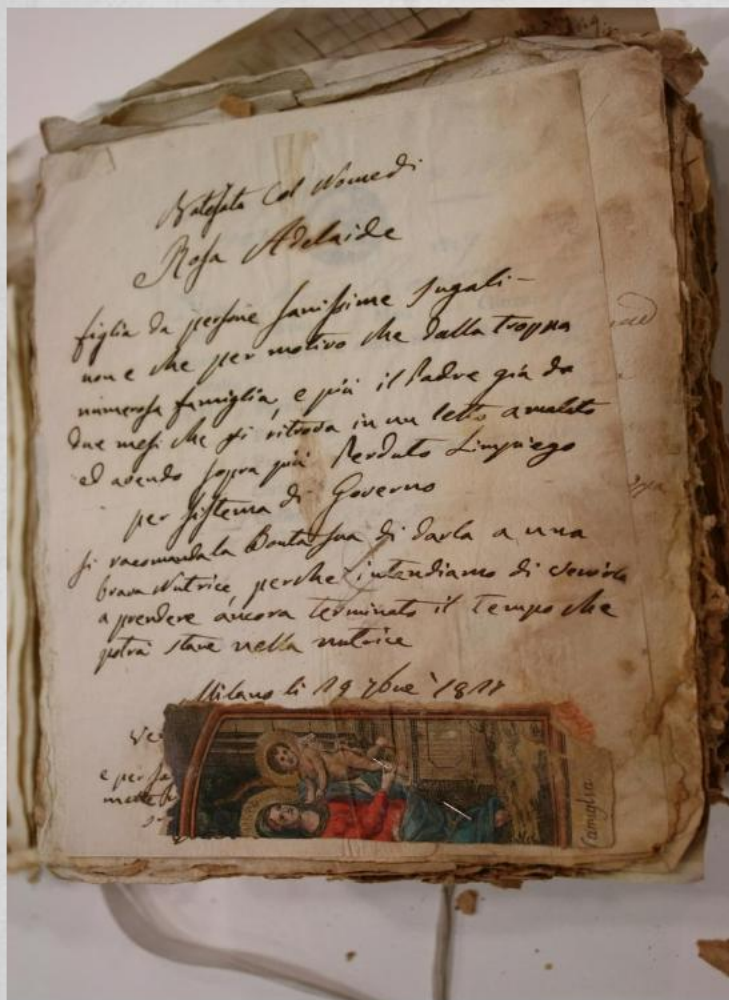 Batezata Col Nome di
Rosa Adelaide
figlia da persone sanissime Jugali-
non e che per motivo che dalla troppa
numerosa famiglia, e più il Padre già da
due mesi che si ritrova in un letto amalato
ed avendo sopra più Perduto Limpiego
per sistema di Governo
si racomanda la Bonta sua di darla a una
brava Nutrice, perche intendiamo di venirla
a prendere ancora terminato il tempo che
potrà stare nella nutrice
Milano li 19 7bre 1818
e per
mette
famiglia